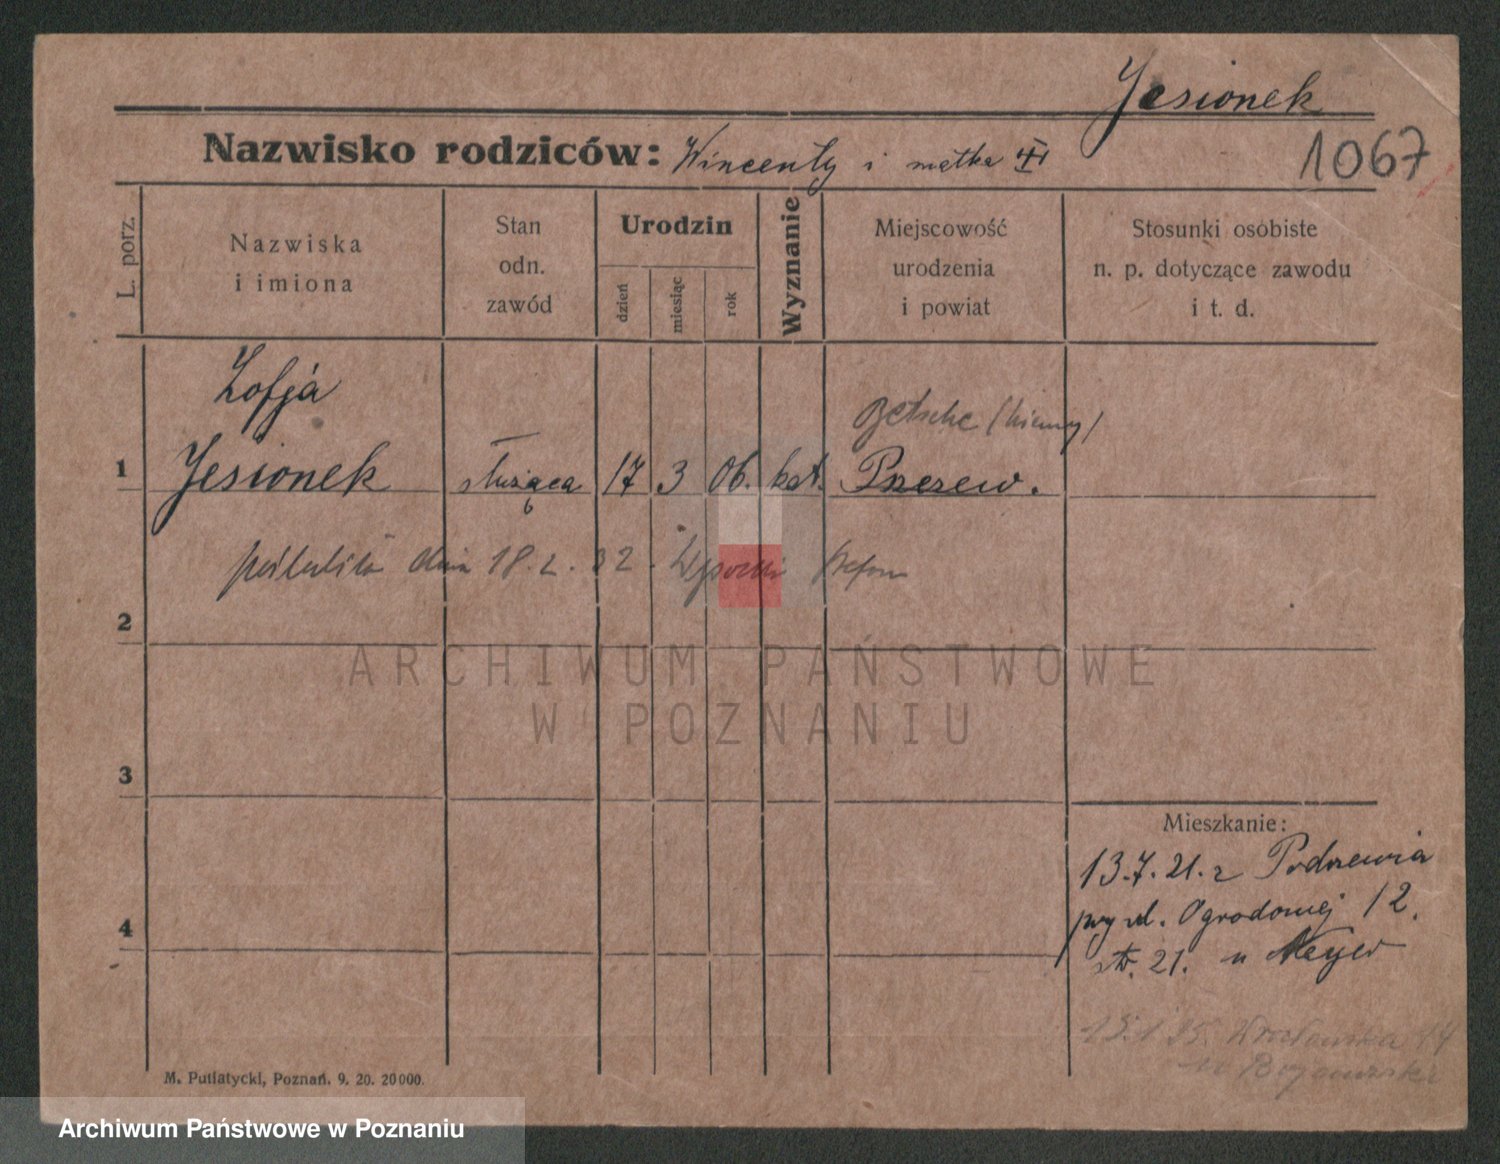 Jesionek
Nazwisko rodziców: Wincenty i matka
1067
L. porz.
Nazwiska
i imiona
Stan
odn.
zawód
Urodzin
dzień
miesiąc
rok
Wyznanie
Miejscowość
urodzenia
i powiat
Stosunki osobiste
n. p. dotyczące zawodu
i t. d.
Zofja
Betsche (Niemcy)
1 Jesionek służąca 17 3 06. kat.
poślubiła dnia 18. 2. 32
2
3
4
Mieszkanie:
13.7.21. z Podrzewia
przy ul. Ogrodowej 12.
21. u Meyer
Wrocławska 14
u
M. Putiatycki, Poznań. 9. 20. 20000.
ARCHIWUM PAŃSTWOWE
W POZNANIU
Archiwum Państwowe w Poznaniu